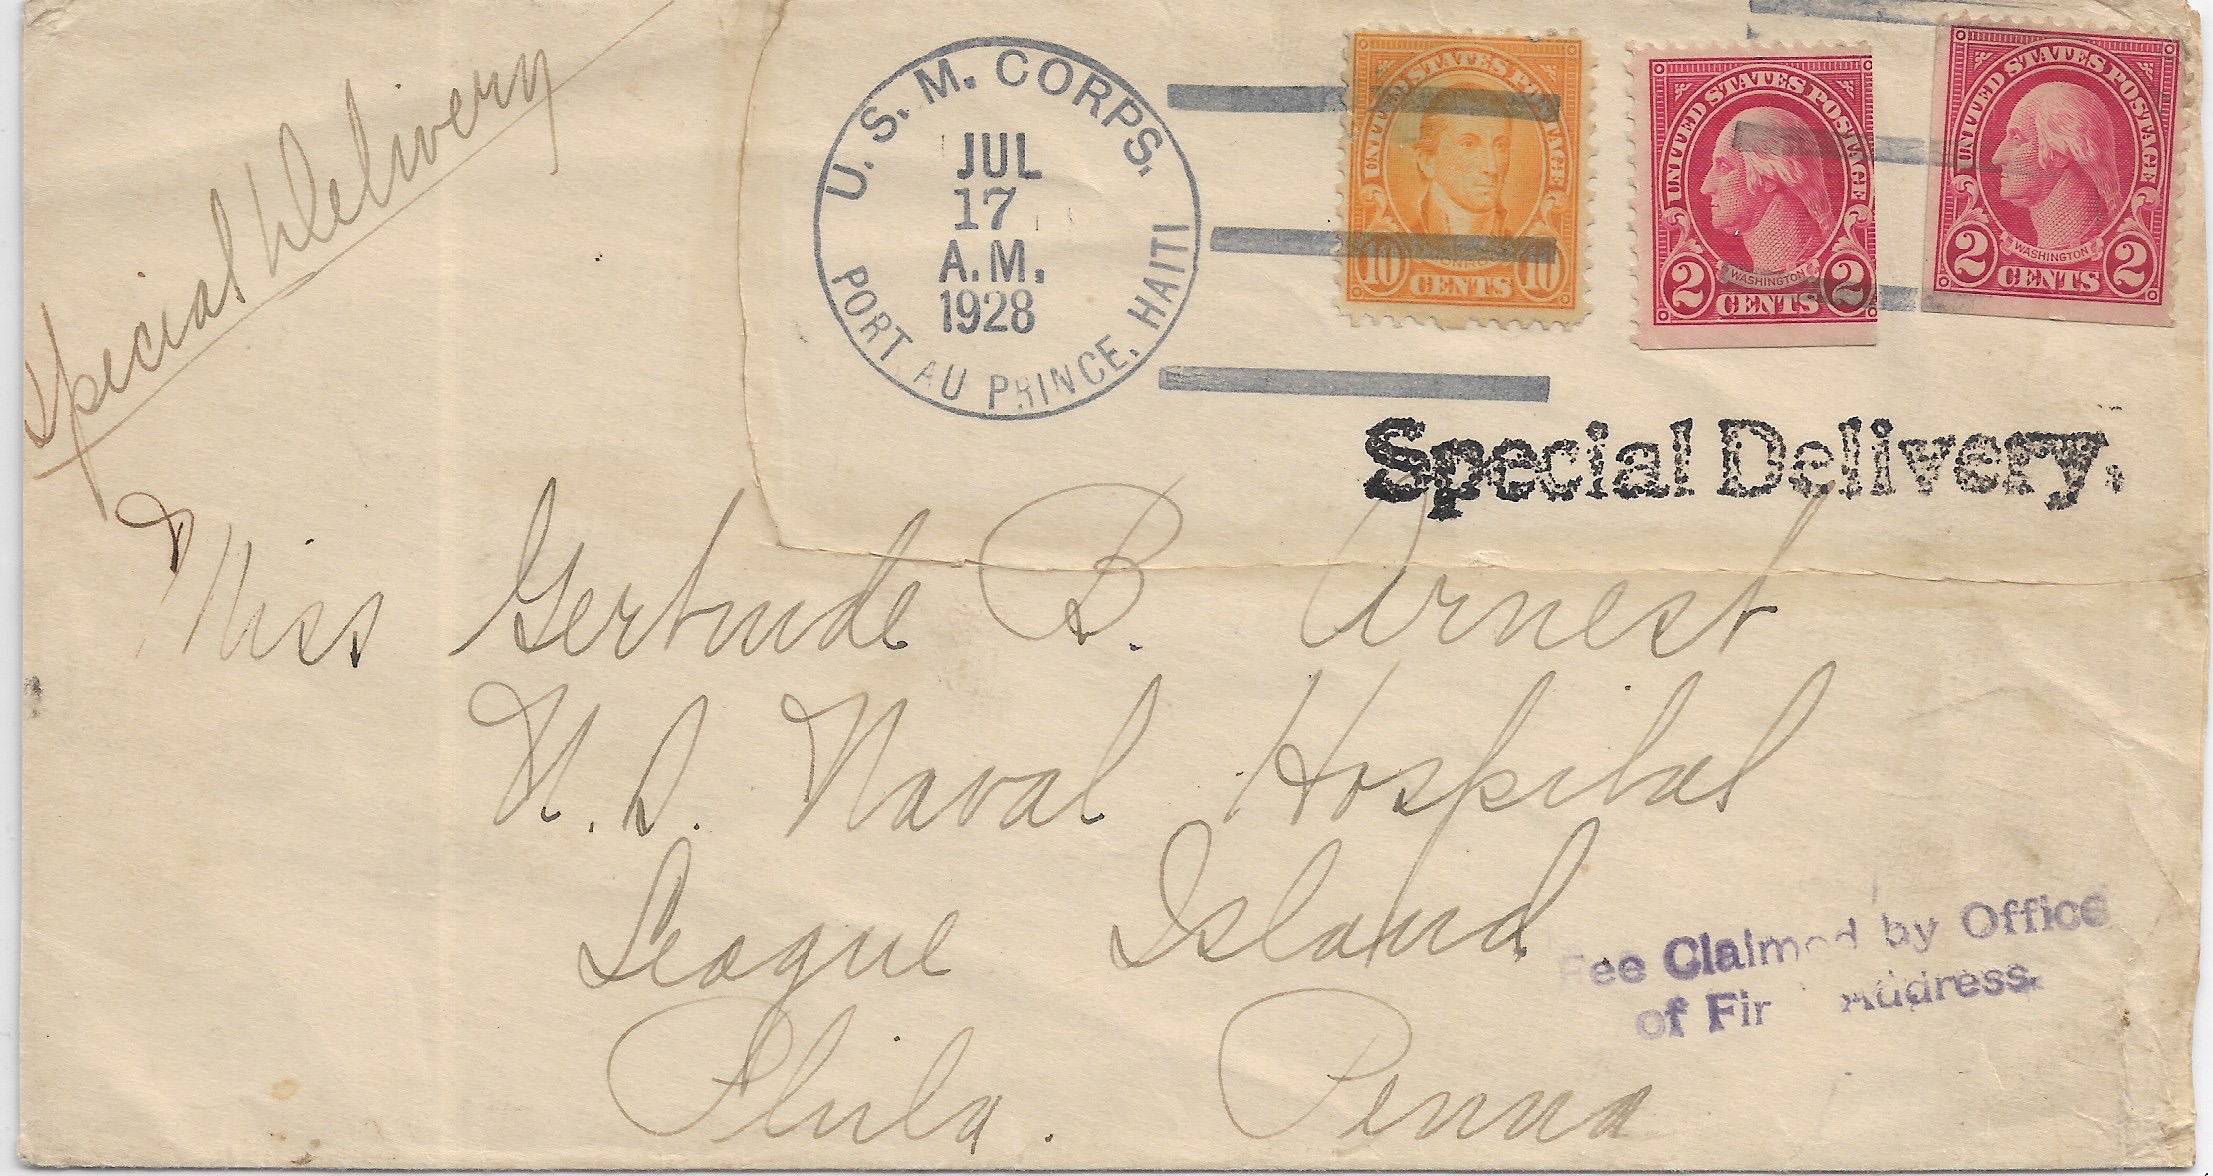 Special Delivery
U. S. M. CORPS.
JUL
17
A.M.
1928
PORT AU PRINCE, HAITI
UNITED STATES POSTAGE
10 CENTS 10
UNITED STATES POSTAGE
WASHINGTON
2 CENTS 2
UNITED STATES POSTAGE
WASHINGTON
2 CENTS 2
Special Delivery.
Miss Gertrude B. Arnest
U. S. Naval Hospital
League Island
Phila. Penna
Fee Claimed by Office
of Address.